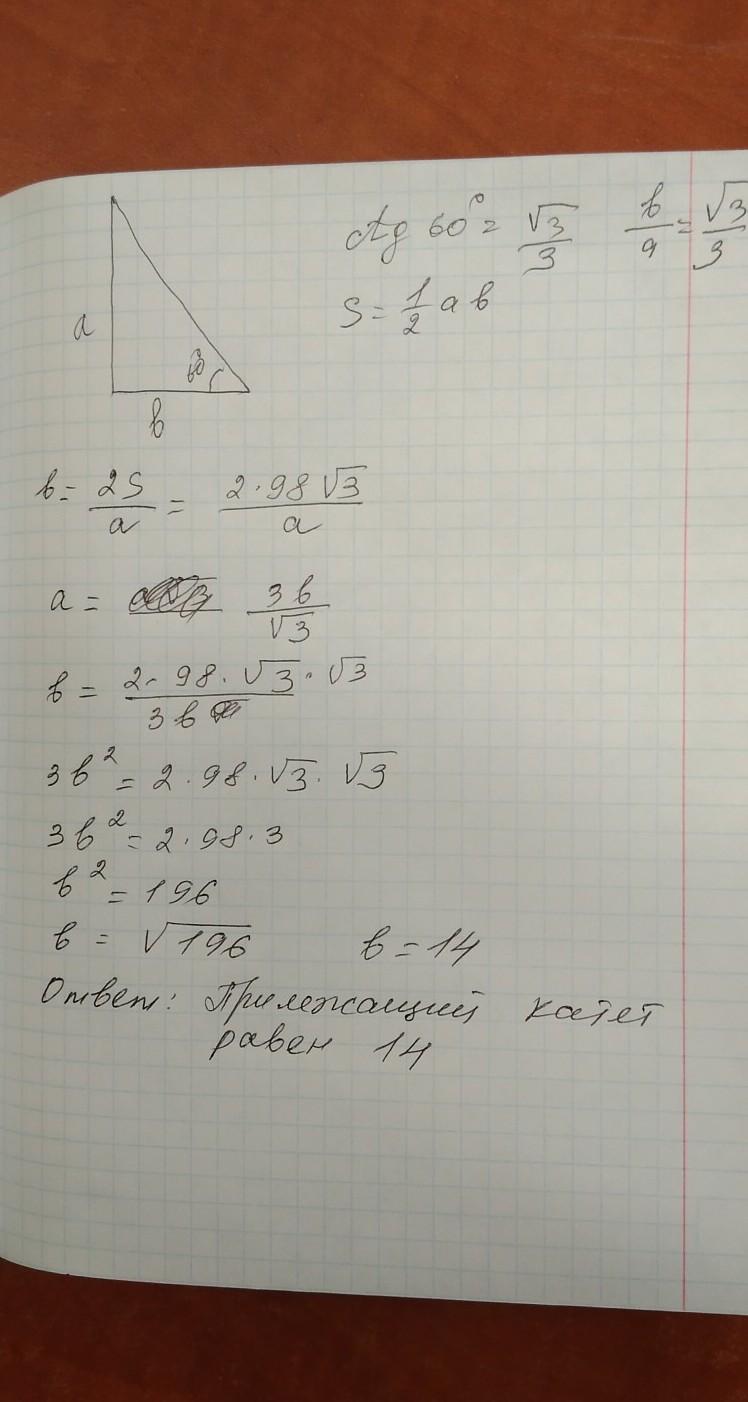 ctg 60° = √3/3   b/a = √3/3
S = 1/2 a b
a
60°
b
b = 2S/a = 2·98√3/a
a = 3b/√3
b = 2·98·√3·√3/3b
3b² = 2·98·√3·√3
3b² = 2·98·3
b² = 196
b = √196   b = 14
Ответ: Прилежащий катет
равен 14